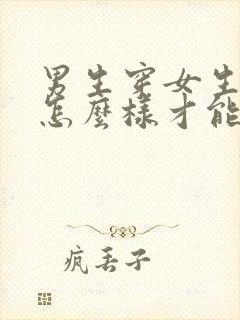 男生穿女生
怎麼樣才能
疯丢子